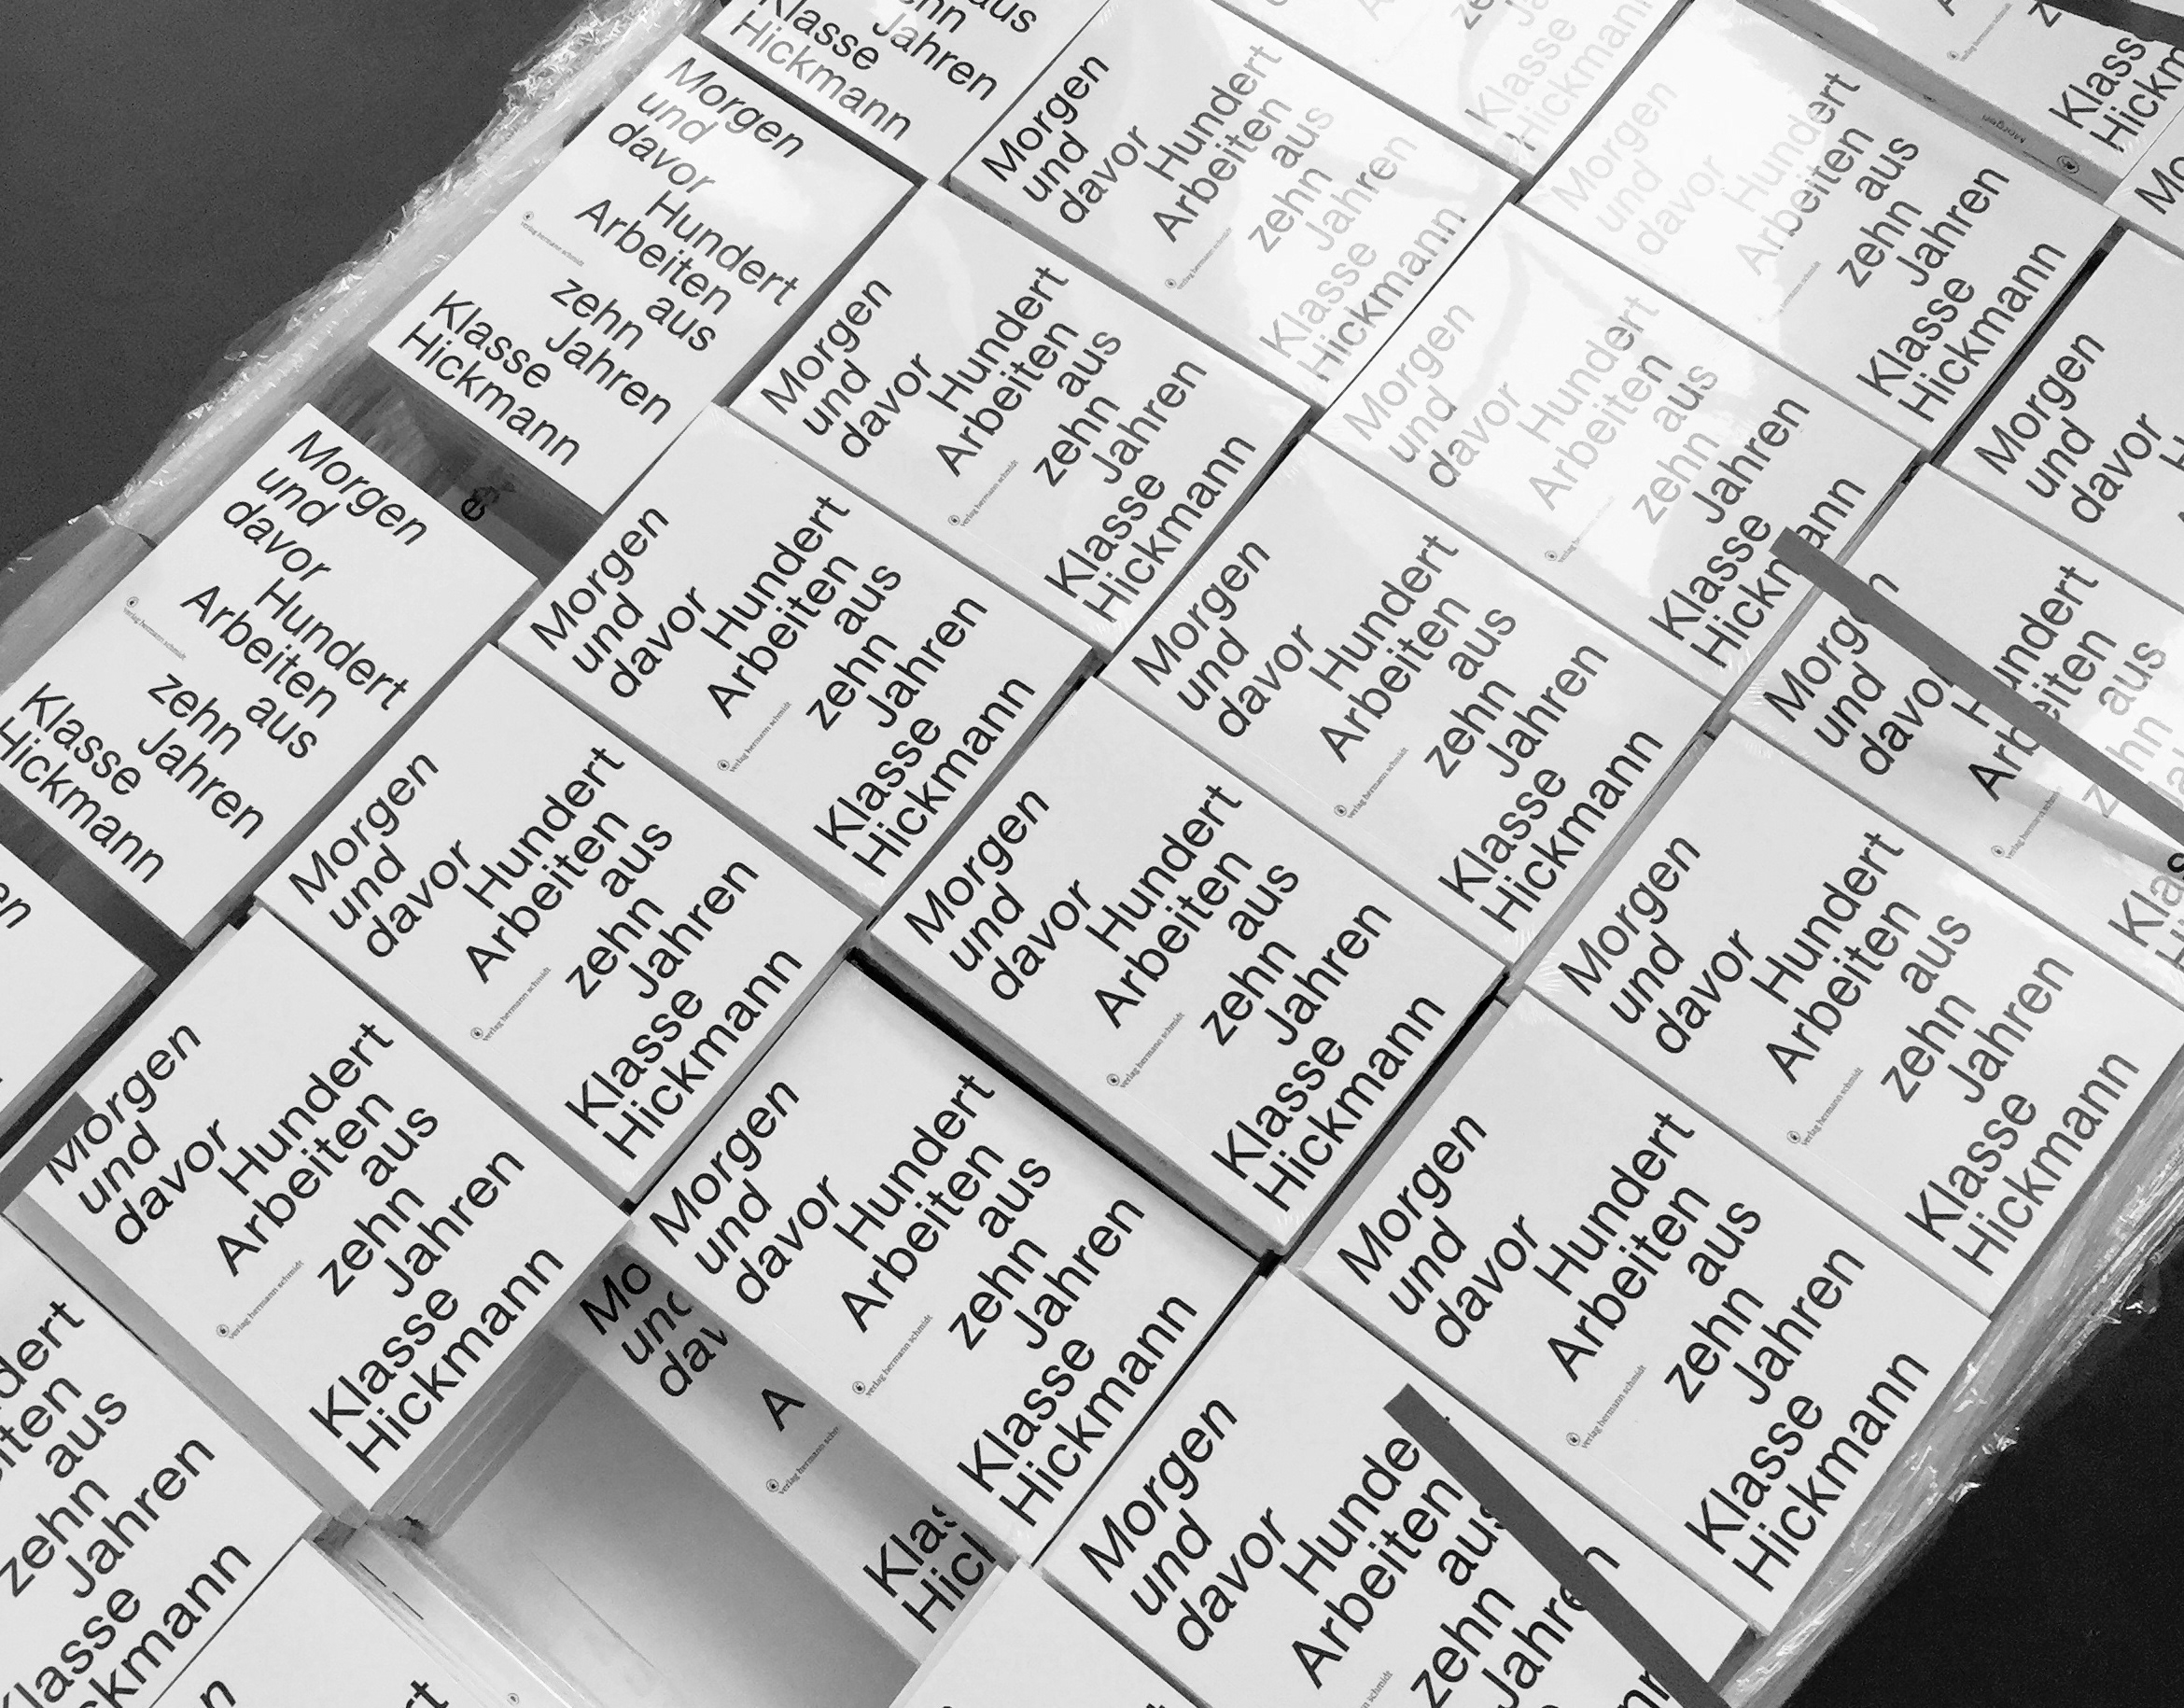 Morgen
und
davor
Hundert
Arbeiten
aus
zehn
Jahren
verlag hermann schmidt
Klasse
Hickmann